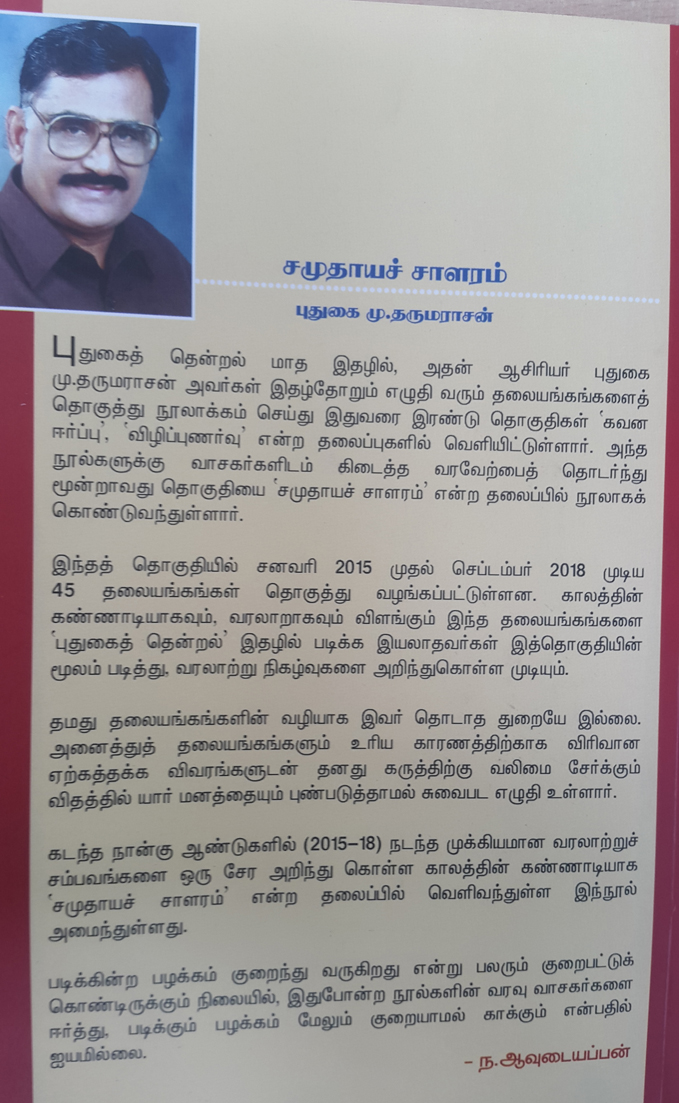 சமுதாயச் சாளரம்
புதுகை மு.தருமராசன்
புதுகைத் தென்றல் மாத இதழில், அதன் ஆசிரியர் புதுகை
மு.தருமராசன் அவர்கள் இதழ்தோறும் எழுதி வரும் தலையங்கங்களைத்
தொகுத்து நூலாக்கம் செய்து இதுவரை இரண்டு தொகுதிகள் 'கவன
ஈர்ப்பு', 'விழிப்புணர்வு' என்ற தலைப்புகளில் வெளியிட்டுள்ளார். அந்த
நூல்களுக்கு வாசகர்களிடம் கிடைத்த வரவேற்பைத் தொடர்ந்து
மூன்றாவது தொகுதியை 'சமுதாயச் சாளரம்' என்ற தலைப்பில் நூலாகக்
கொண்டுவந்துள்ளார்.
இந்தத் தொகுதியில் சனவரி 2015 முதல் செப்டம்பர் 2018 முடிய
45 தலையங்கங்கள் தொகுத்து வழங்கப்பட்டுள்ளன. காலத்தின்
கண்ணாடியாகவும், வரலாறாகவும் விளங்கும் இந்த தலையங்கங்களை
'புதுகைத் தென்றல்' இதழில் படிக்க இயலாதவர்கள் இத்தொகுதியின்
மூலம் படித்து, வரலாற்று நிகழ்வுகளை அறிந்துகொள்ள முடியும்.
தமது தலையங்கங்களின் வழியாக இவர் தொடாத துறையே இல்லை.
அனைத்துத் தலையங்கங்களும் உரிய காரணத்திற்காக விரிவான
ஏற்கத்தக்க விவரங்களுடன் தனது கருத்திற்கு வலிமை சேர்க்கும்
விதத்தில் யார் மனத்தையும் புண்படுத்தாமல் சுவைபட எழுதி உள்ளார்.
கடந்த நான்கு ஆண்டுகளில் (2015-18) நடந்த முக்கியமான வரலாற்றுச்
சம்பவங்களை ஒரு சேர அறிந்து கொள்ள காலத்தின் கண்ணாடியாக
'சமுதாயச் சாளரம்' என்ற தலைப்பில் வெளிவந்துள்ள இந்நூல்
அமைந்துள்ளது.
படிக்கின்ற பழக்கம் குறைந்து வருகிறது என்று பலரும் குறைபட்டுக்
கொண்டிருக்கும் நிலையில், இதுபோன்ற நூல்களின் வரவு வாசகர்களை
ஈர்த்து, படிக்கும் பழக்கம் மேலும் குறையாமல் காக்கும் என்பதில்
ஐயமில்லை.
- ந.ஆவுடையப்பன்